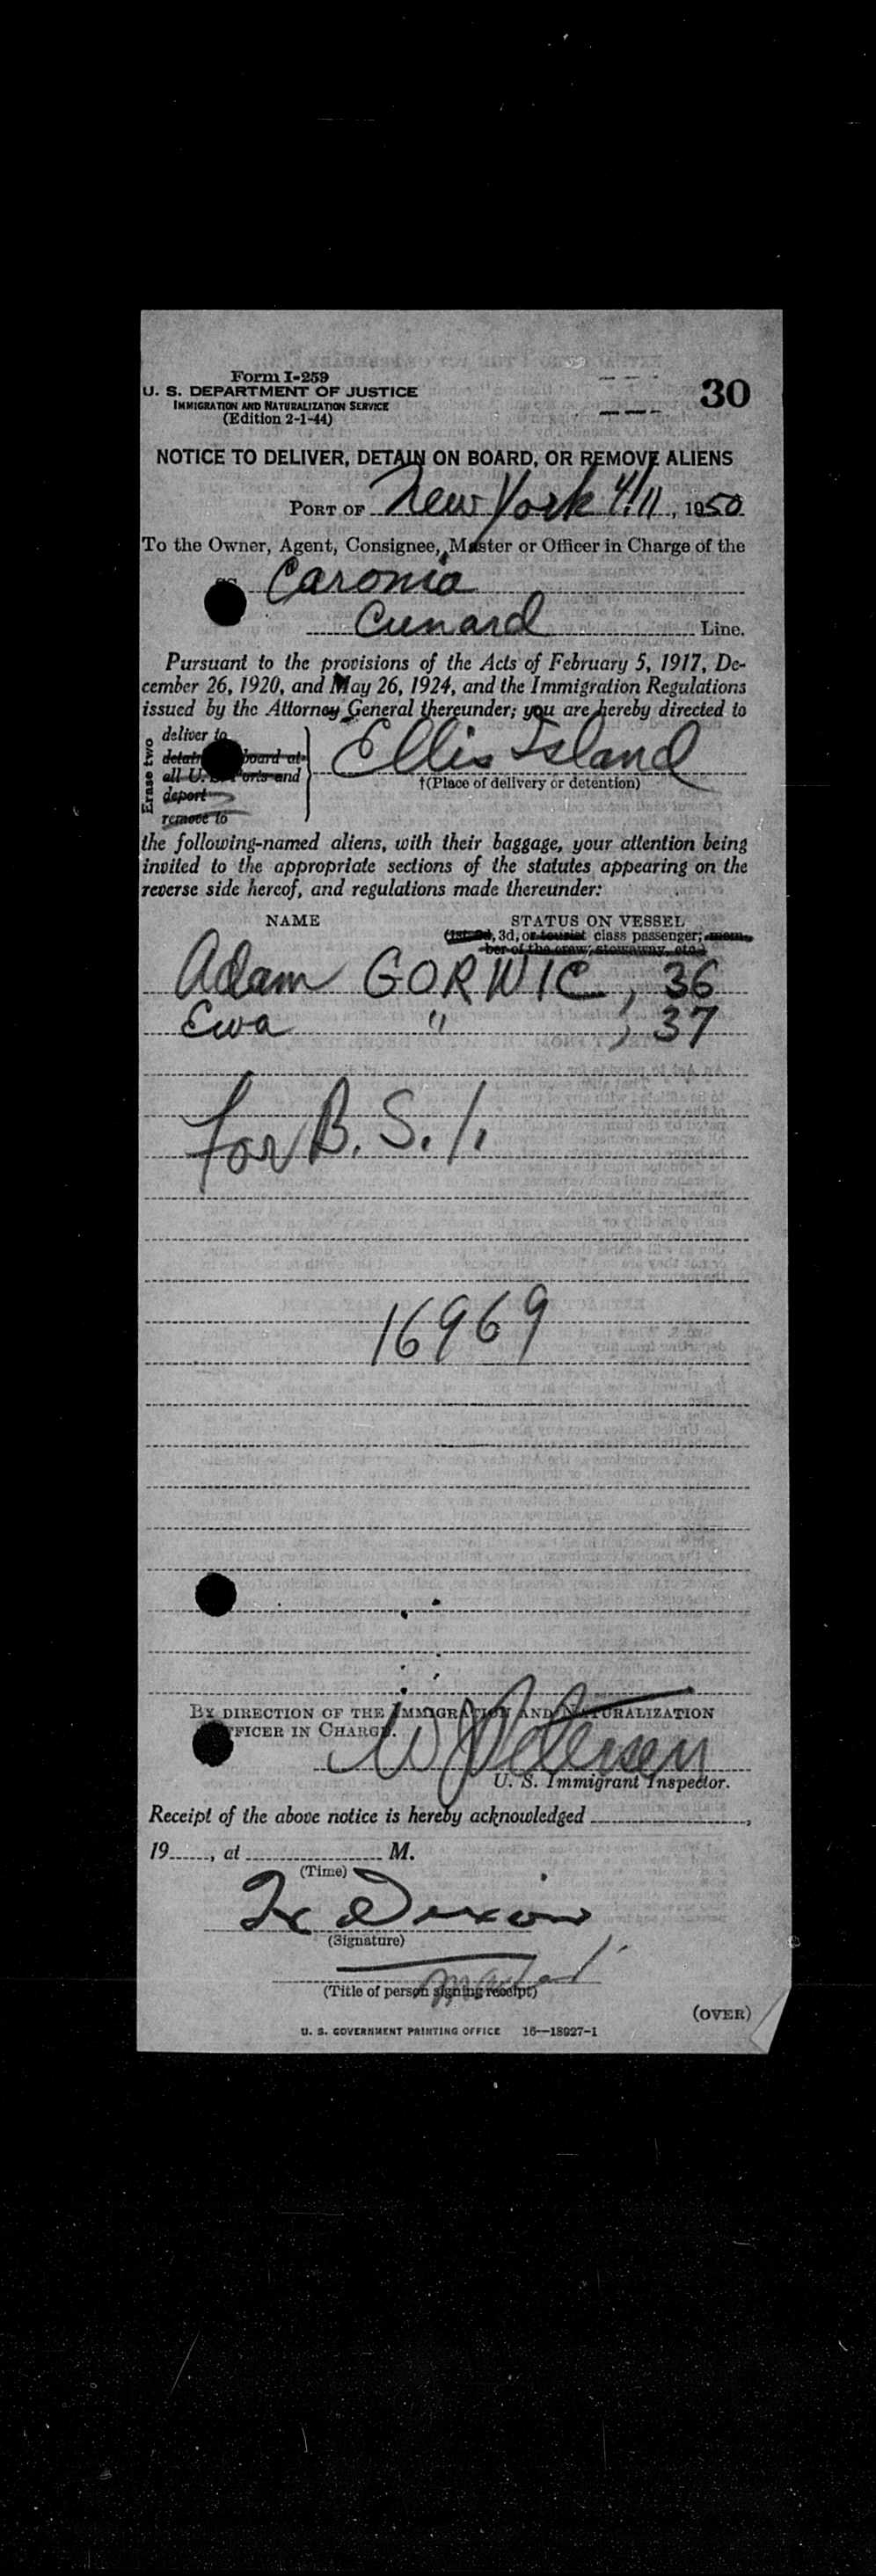 Form I-259
U. S. DEPARTMENT OF JUSTICE
IMMIGRATION AND NATURALIZATION SERVICE
(Edition 2-1-44)
30
NOTICE TO DELIVER, DETAIN ON BOARD, OR REMOVE ALIENS
PORT OF New York 4/11, 1950
To the Owner, Agent, Consignee, Master or Officer in Charge of the
Caronia
Cunard Line.
Pursuant to the provisions of the Acts of February 5, 1917, De-
cember 26, 1920, and May 26, 1924, and the Immigration Regulations
issued by the Attorney General thereunder; you are hereby directed to
Erase two
deliver to
board at
all U. Ports and
deport
remove to
Ellis Island
†(Place of delivery or detention)
the following-named aliens, with their baggage, your attention being
invited to the appropriate sections of the statutes appearing on the
reverse side hereof, and regulations made thereunder:
NAME STATUS ON VESSEL
(1st, 2d, 3d, or tourist class passenger; mem-
ber of the crew, stowaway, etc.)
Adam GORWIC, 36
Ewa " , 37
for B. S. I.
16969
BY DIRECTION OF THE IMMIGRATION AND NATURALIZATION
OFFICER IN CHARGE.
U. S. Immigrant Inspector.
Receipt of the above notice is hereby acknowledged ,
19 , at M.
(Time)
(Signature)
(Title of person signing receipt)
(OVER)
U. S. GOVERNMENT PRINTING OFFICE 16—18027-1